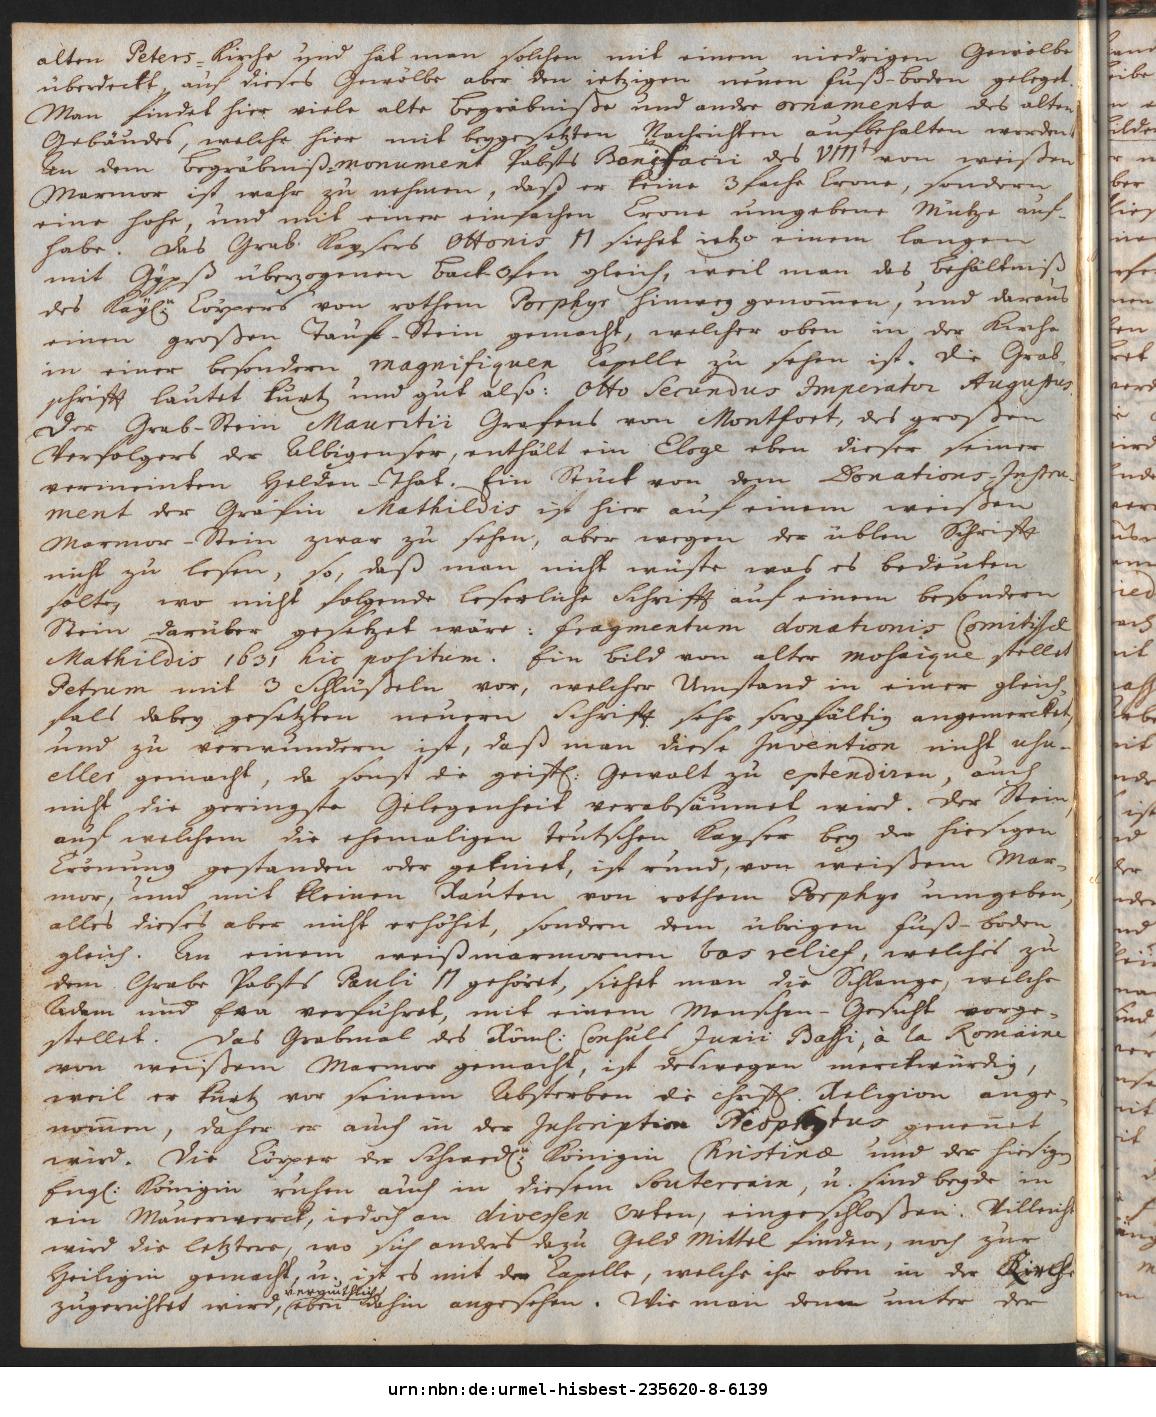 alten Peters-Kirche und hat man solchen mit einem niedrigen Gewölbe
überdeckt, auf dieses Gewölbe aber den ietzigen neuen Fuß-boden geleget.
Man findet hier viele alte Begräbniße und andre ornamenta des alten
Gebäudes, welche hier mit beygesetzten Nachrichten aufbehalten werden.
An dem Begräbniß-monument Pabsts Bonifacii des VIIIt von weißen
Marmor ist wahr zu nehmen, daß er keine 3fache Crone, sondern
eine hohe, und mit einer einfachen Crone umgebene Mütze auf-
habe. Das Grab Kaysers Ottonis II siehet ietzo einem langen
mit Gypß überzogenen back-ofen gleich, weil man das Behältniß
des Kayl:n Cörpers von rothem Porphyr hinweg genommen, und daraus
einen großen Tauf-Stein gemacht, welcher oben in der Kirche
in einer besondern magnifiquen Capelle zu sehen ist. Die Grab-
schrifft lautet kurtz und gut also: Otto Secundus Imperator Augustus.
Der Grab-Stein Mauritii Grafens von Montfort, des großen
Verfolgers der Albigenser, enthält ein Eloge eben dieser seiner
vermeinten Helden-That. Ein Stück von dem Donations-Instru-
ment der Gräfin Mathildis ist hier auf einem weißen
Marmor-Stein zwar zu sehen, aber wegen der üblen Schrifft
nicht zu lesen, so, daß man nicht wüste was es bedeuten
solte, wo nicht folgende leserliche Schrifft auf einem besondern
Stein darüber gesetzet wäre: fragmentum donationis Comitissæ
Mathildis 1631 hic positum. Ein bild von alter mosaique stellet
Petrum mit 3 Schlüßeln vor, welcher Umstand in einer gleich-
fals dabey gesetzten neuern Schrifft sehr sorgfältig angemercket,
und zu verwundern ist, daß man diese Invention nicht usu-
eller gemacht, da sonst die geistl: Gewalt zu extendiren, auch
nicht die geringste Gelegenheit verabsäumet wird. Der Stein,
auf welchem die ehemaligen teutschen Kayser bey der hiesigen
Crönung gestanden oder gekniet, ist rund, von weißem Mar-
mor, und mit kleinen Rauten von rothem Porphyr umgeben,
alles dieses aber nicht erhöhet, sondern dem übrigen Fuß-boden
gleich. An einem weißmarmornen bas relief, welches zu
dem Grabe Pabsts Pauli II gehöret, siehet man die Schlange, welche
Adam und Eva verführet, mit einem Menschen-Gesicht vorge-
stellet. Das Grabmal des Röml: Consuls Junii Bassi, à la Romaine
von weißem Marmor gemacht, ist deswegen merckwürdig,
weil er kurtz vor seinem Absterben die christl. Religion ange-
nommen, daher er auch in der Inscription Neophytus genennet
wird. Die Cörper der Schwed:n Königin Christinæ und der hiesigen
Engl: Königin ruhen auch in diesem Souterrain, u. sind beyde in
ein Mauerwerck, iedoch an diversen Orten, eingeschloßen. Villeicht
wird die letztere, wo sich anders dazu Geld Mittel finden, noch zur
Heiligin gemacht, u. ist es mit der Capelle, welche ihr oben in der Kirche
vermuthlich
zugerichtet wird, eben dahin angesehen. Wie man denn unter der